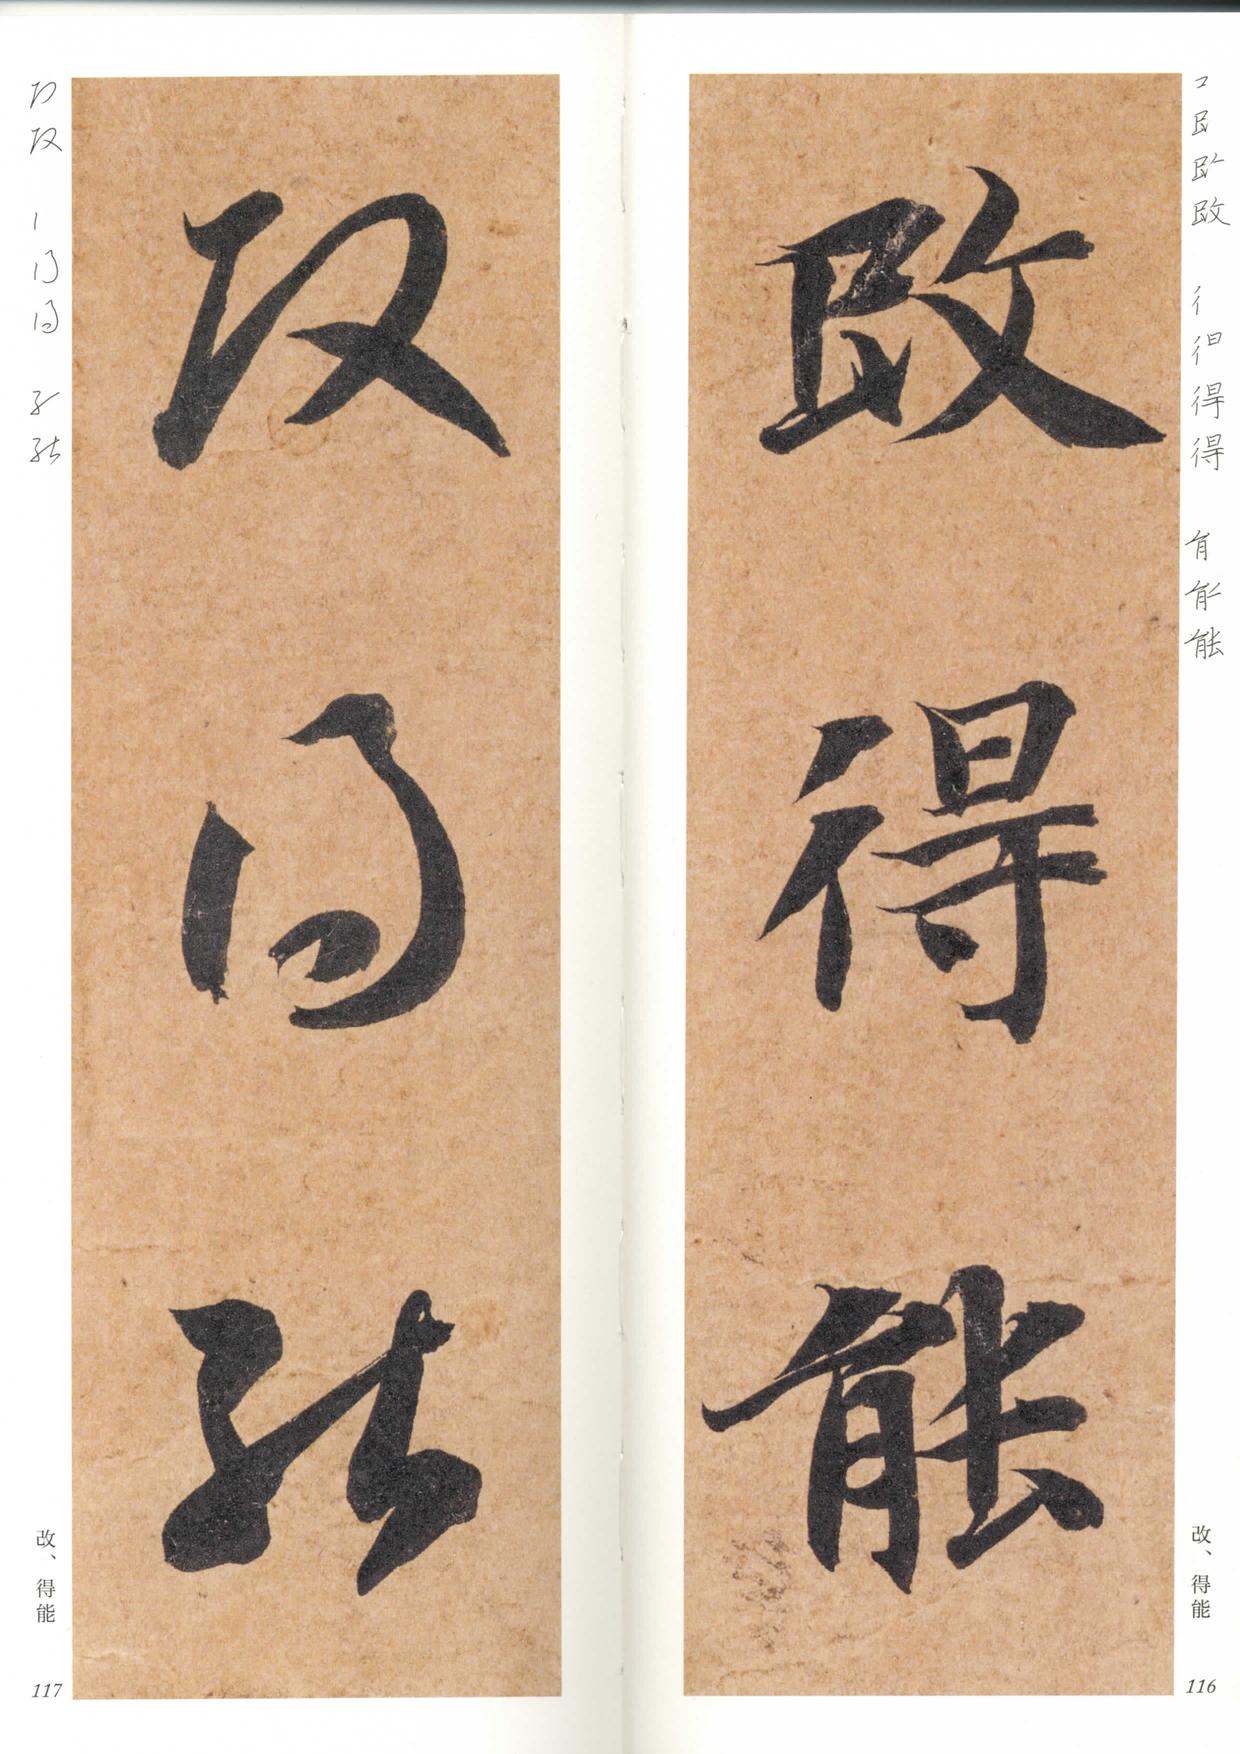 改得能
改、得能
116
改得能
改、得能
117